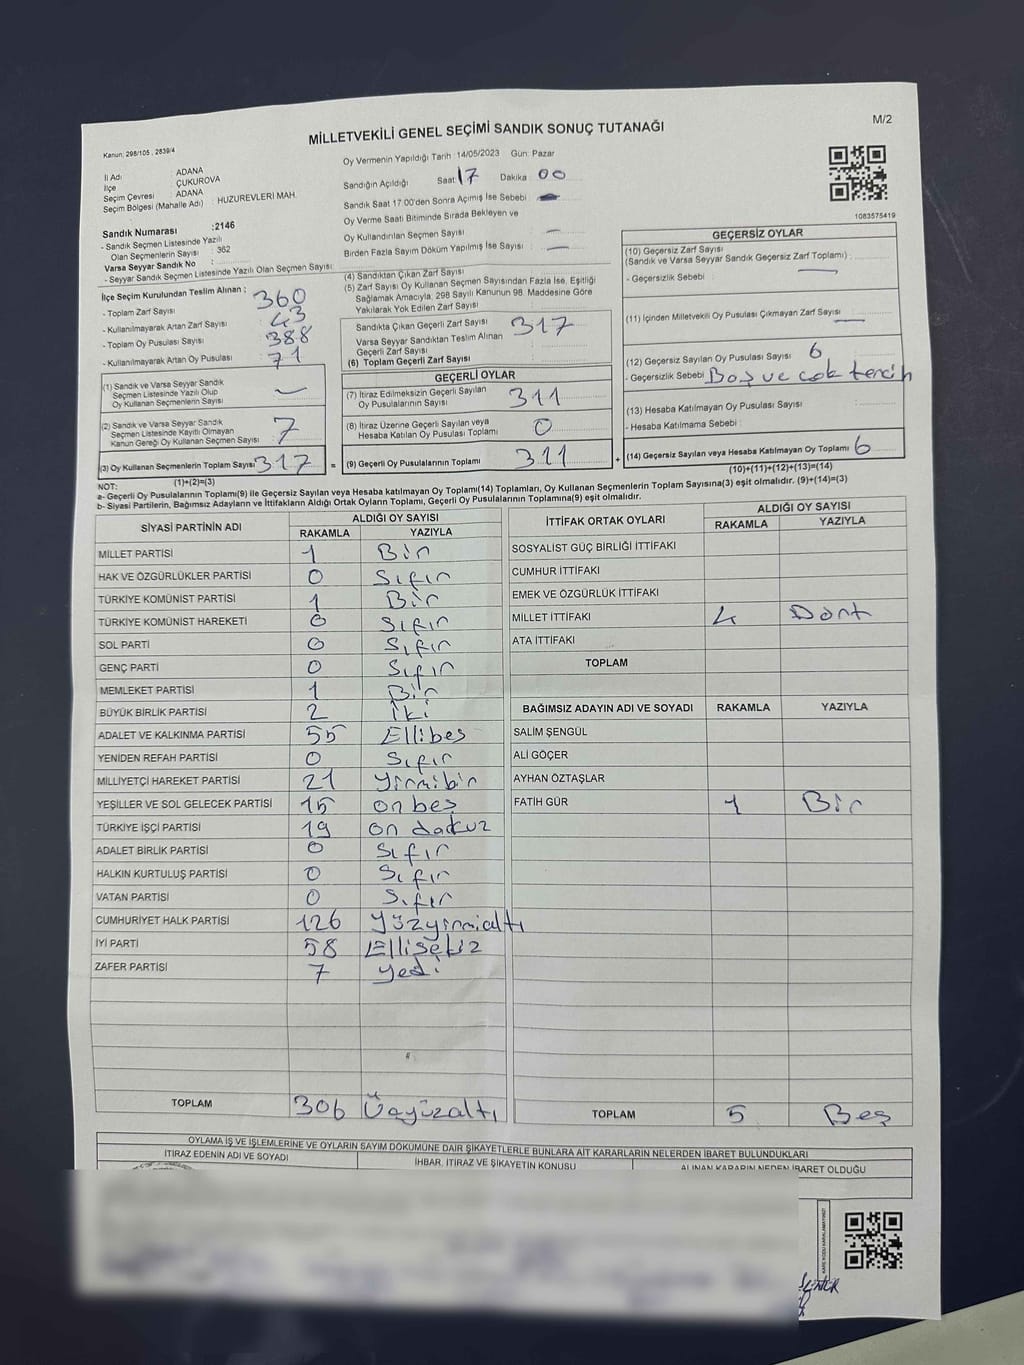 M/2
MİLLETVEKİLİ GENEL SEÇİMİ SANDIK SONUÇ TUTANAĞI
Kanun: 298/105 , 2839/4
Oy Vermenin Yapıldığı Tarih :14/05/2023 Gün: Pazar
İl Adı : ADANA
İlçe : ÇUKUROVA
Seçim Çevresi : ADANA
Seçim Bölgesi (Mahalle Adı) : HUZUREVLERİ MAH.
Sandık Numarası :2146
- Sandık Seçmen Listesinde Yazılı
Olan Seçmenlerin Sayısı : 362
Varsa Seyyar Sandık No :
- Seyyar Sandık Seçmen Listesinde Yazılı Olan Seçmen Sayısı:
Sandığın Açıldığı Saat: 17 Dakika 00
Sandık Saat 17.00'den Sonra Açılmış İse Sebebi :
Oy Verme Saati Bitiminde Sırada Bekleyen ve
Oy Kullandırılan Seçmen Sayısı : —
Birden Fazla Sayım Döküm Yapılmış İse Sayısı : —
1083575419
İlçe Seçim Kurulundan Teslim Alınan ;
- Toplam Zarf Sayısı : 360
- Kullanılmayarak Artan Zarf Sayısı : 43
- Toplam Oy Pusulası Sayısı : 388
- Kullanılmayarak Artan Oy Pusulası : 71
(1) Sandık ve Varsa Seyyar Sandık
Seçmen Listesinde Yazılı Olup
Oy Kullanan Seçmenlerin Sayısı : —
(2) Sandık ve Varsa Seyyar Sandık
Seçmen Listesinde Kayıtlı Olmayan
Kanun Gereği Oy Kullanan Seçmen Sayısı : 7
(3) Oy Kullanan Seçmenlerin Toplam Sayısı: 317
(1)+(2)=(3)
(4) Sandıktan Çıkan Zarf Sayısı
(5) Zarf Sayısı Oy Kullanan Seçmen Sayısından Fazla İse, Eşitliği
Sağlamak Amacıyla, 298 Sayılı Kanunun 98. Maddesine Göre
Yakılarak Yok Edilen Zarf Sayısı :
Sandıkta Çıkan Geçerli Zarf Sayısı : 317
Varsa Seyyar Sandıktan Teslim Alınan
Geçerli Zarf Sayısı :
(6) Toplam Geçerli Zarf Sayısı :
GEÇERLİ OYLAR
(7) İtiraz Edilmeksizin Geçerli Sayılan
Oy Pusulalarının Sayısı : 311
(8) İtiraz Üzerine Geçerli Sayılan veya
Hesaba Katılan Oy Pusulası Toplamı : 0
= (9) Geçerli Oy Pusulalarının Toplamı : 311 +
GEÇERSİZ OYLAR
(10) Geçersiz Zarf Sayısı
(Sandık ve Varsa Seyyar Sandık Geçersiz Zarf Toplamı) : —
- Geçersizlik Sebebi :
(11) İçinden Milletvekili Oy Pusulası Çıkmayan Zarf Sayısı : —
(12) Geçersiz Sayılan Oy Pusulası Sayısı : 6
- Geçersizlik Sebebi: Boş ve çok tercih
(13) Hesaba Katılmayan Oy Pusulası Sayısı :
- Hesaba Katılmama Sebebi :
(14) Geçersiz Sayılan veya Hesaba Katılmayan Oy Toplamı : 6
(10)+(11)+(12)+(13)=(14)
NOT:
a- Geçerli Oy Pusulalarının Toplamı(9) ile Geçersiz Sayılan veya Hesaba katılmayan Oy Toplamı(14) Toplamları, Oy Kullanan Seçmenlerin Toplam Sayısına(3) eşit olmalıdır. (9)+(14)=(3)
b- Siyasi Partilerin, Bağımsız Adayların ve İttifakların Aldığı Ortak Oyların Toplamı, Geçerli Oy Pusulalarının Toplamına(9) eşit olmalıdır.
SİYASİ PARTİNİN ADI ALDIĞI OY SAYISI
RAKAMLA YAZIYLA
MİLLET PARTİSİ 1 Bir
HAK VE ÖZGÜRLÜKLER PARTİSİ 0 Sıfır
TÜRKİYE KOMÜNİST PARTİSİ 1 Bir
TÜRKİYE KOMÜNİST HAREKETİ 0 Sıfır
SOL PARTİ 0 Sıfır
GENÇ PARTİ 0 Sıfır
MEMLEKET PARTİSİ 1 Bir
BÜYÜK BİRLİK PARTİSİ 2 İki
ADALET VE KALKINMA PARTİSİ 55 Ellibeş
YENİDEN REFAH PARTİSİ 0 Sıfır
MİLLİYETÇİ HAREKET PARTİSİ 21 Yirmibir
YEŞİLLER VE SOL GELECEK PARTİSİ 15 onbeş
TÜRKİYE İŞÇİ PARTİSİ 19 on dokuz
ADALET BİRLİK PARTİSİ 0 Sıfır
HALKIN KURTULUŞ PARTİSİ 0 Sıfır
VATAN PARTİSİ 0 Sıfır
CUMHURİYET HALK PARTİSİ 126 Yüzyirmialtı
İYİ PARTİ 58 Ellisekiz
ZAFER PARTİSİ 7 Yedi
#
TOPLAM 306 Üçyüzaltı
İTTİFAK ORTAK OYLARI ALDIĞI OY SAYISI
RAKAMLA YAZIYLA
SOSYALIST GÜÇ BİRLİĞİ İTTİFAKI
CUMHUR İTTİFAKI
EMEK VE ÖZGÜRLÜK İTTİFAKI
MİLLET İTTİFAKI 4 Dört
ATA İTTİFAKI
TOPLAM
BAĞIMSIZ ADAYIN ADI VE SOYADI RAKAMLA YAZIYLA
SALİM ŞENGÜL
ALİ GÖÇER
AYHAN ÖZTAŞLAR
FATİH GÜR 1 Bir
TOPLAM 5 Beş
OYLAMA İŞ VE İŞLEMLERİNE VE OYLARIN SAYIM DÖKÜMÜNE DAİR ŞİKAYETLERLE BUNLARA AİT KARARLARIN NELERDEN İBARET BULUNDUKLARI
İTİRAZ EDENİN ADI VE SOYADI İHBAR, İTİRAZ VE ŞİKAYETİN KONUSU ALINAN KARARIN NEDEN İBARET OLDUĞU